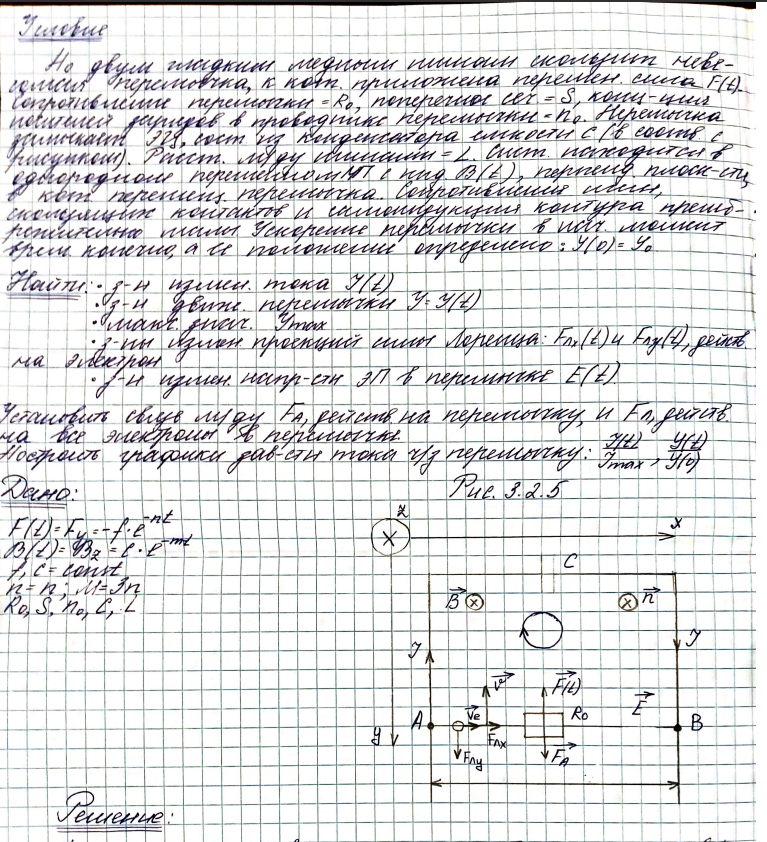 Условие
По двум гладким медным шинам скользит неве-
сомая перемычка, к кот. приложена перемен. сила F(t).
Сопротивление перемычки = R₀, поперечное сеч = S, конц-ция
носителей зарядов в проводнике перемычки = n₀. Перемычка
замыкает ЭЦ, сост из конденсатора емкости C (в соотв с
рисунком). Расст. м/ду шинами = L. Сист. находится в
однородном переменном МП с инд B(t), перпенд плоск-сти,
в кот перемещ. перемычка. Сопротивление шин,
скользящих контактов и самоиндукция контура пренеб-
режительно малы. Ускорение перемычки в нач. момент
врем конечно, а её положение определено: y(0) = y₀
Найти: • з-н измен. тока J(t)
• з-н движ. перемычки y = y(t)
• макс. знач. Jmax
• з-ны измен. проекций силы Лоренца: Fлx(t) и Fлy(t), действ.
на электрон
• з-н измен. напр-сти ЭП в перемычке E(t).
Установить связь м/ду FA, действ. на перемычку, и Fл, действ.
на все электроны в перемычке.
Построить графики зав-сти тока ч/з перемычку: J(t)/Jmax, y(t)/y(0)
Дано:
Рис. 3.2.5
F(t) = Fy = -f·e^-nt
B(t) = Bz = c·e^-mt
f, c = const
n = n; M = 3n
R₀, S, n₀, C, L
z
x
C
B
n
J
J
v
F(t)
E
A
ve
Fлx
R₀
B
y
Fлy
FA
Решение: